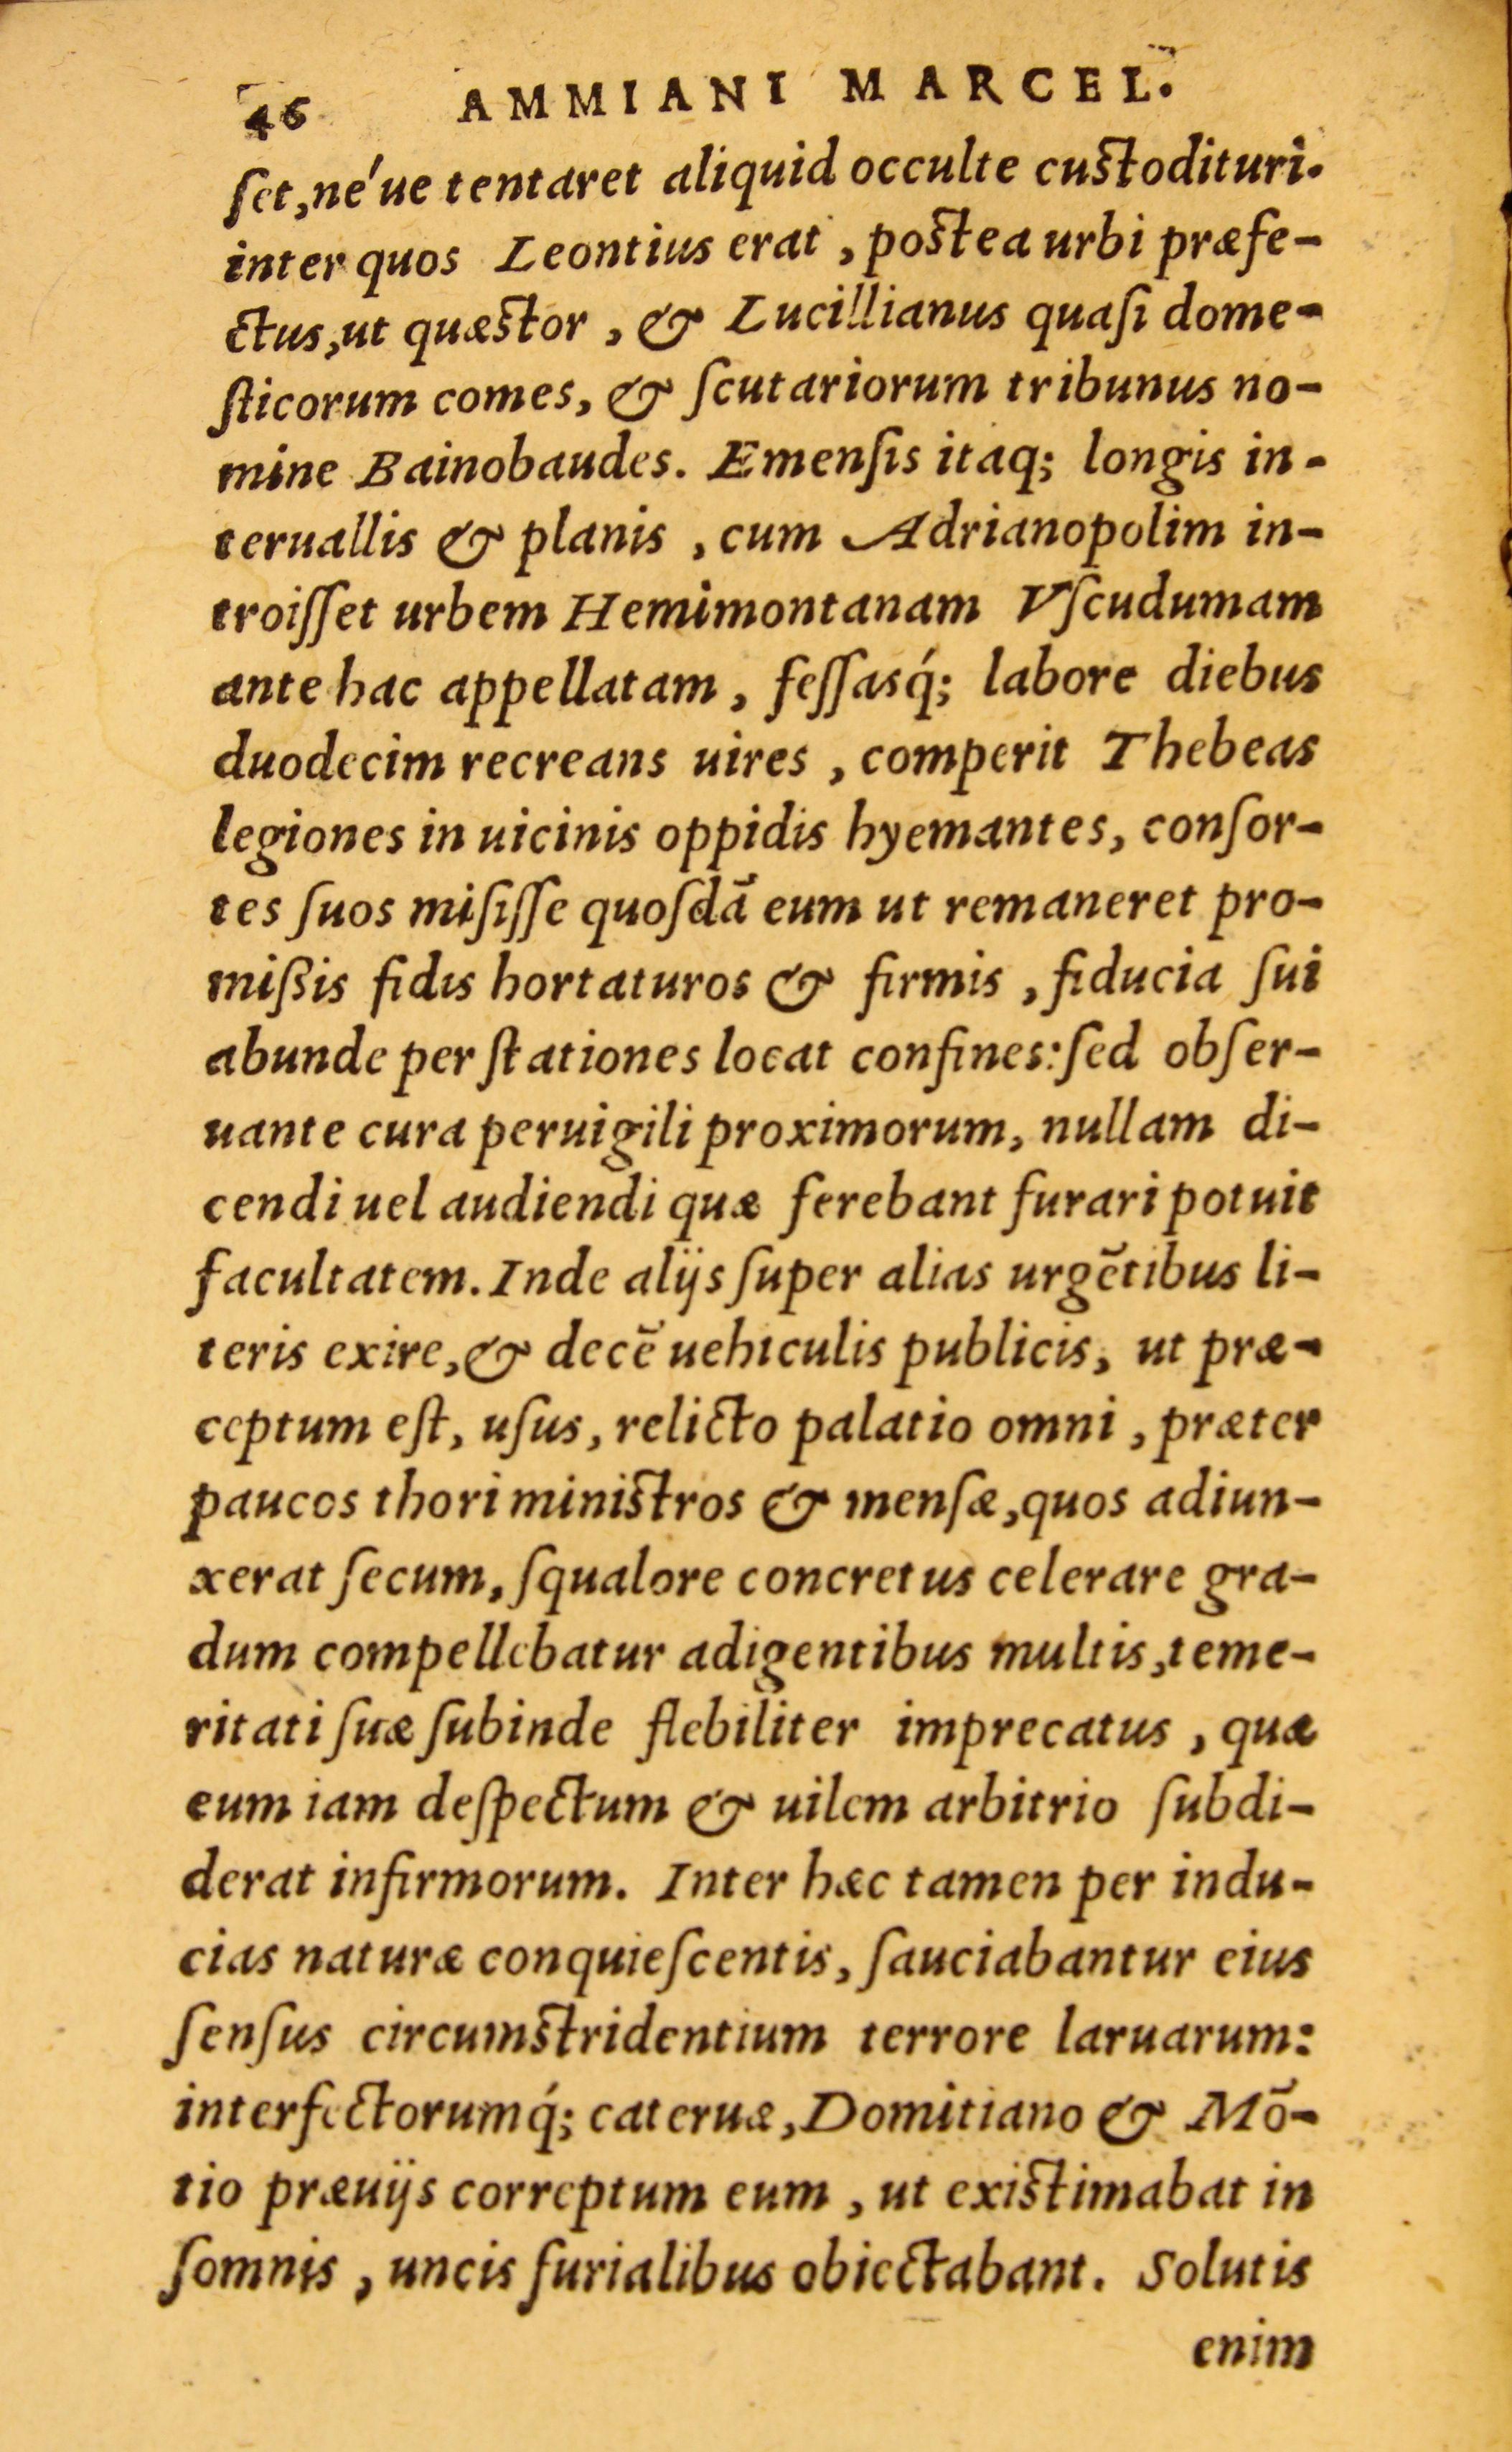 46 AMMIANI MARCEL.
ſet, né ue tentaret aliquid occulte cuſtodituri.
inter quos Leontius erat, poſtea urbi præfe-
ctus, ut quæſtor, & Lucillianus quaſi dome-
ſticorum comes, & ſcutariorum tribunus no-
mine Bainobaudes. Emenſis itaq; longis in-
teruallis & planis, cum Adrianopolim in-
troiſſet urbem Hemimontanam Vſcudumam
ante hac appellatam, feſſasq́; labore diebus
duodecim recreans uires, comperit Thebeas
legiones in uicinis oppidis hyemantes, conſor-
tes ſuos miſiſſe quoſdā eum ut remaneret pro-
mißis fidis hortaturos & firmis, fiducia ſui
abunde per ſtationes locat confines: ſed obſer-
uante cura peruigili proximorum, nullam di-
cendi uel audiendi quæ ferebant furari potuit
facultatem. Inde alijs ſuper alias urgētibus li-
teris exire, & decē uehiculis publicis, ut præ-
ceptum eſt, uſus, relicto palatio omni, præter
paucos thori miniſtros & menſæ, quos adiun-
xerat ſecum, ſqualore concretus celerare gra-
dum compellebatur adigentibus multis, teme-
ritati ſuæ ſubinde flebiliter imprecatus, quæ
eum iam deſpectum & uilem arbitrio ſubdi-
derat infirmorum. Inter hæc tamen per indu-
cias naturæ conquieſcentis, ſauciabantur eius
ſenſus circumſtridentium terrore laruarum:
interfectorumq́; cateruæ, Domitiano & Mō-
tio præuijs correptum eum, ut exiſtimabat in
ſomnis, uncis furialibus obiectabant. Solutis
enim